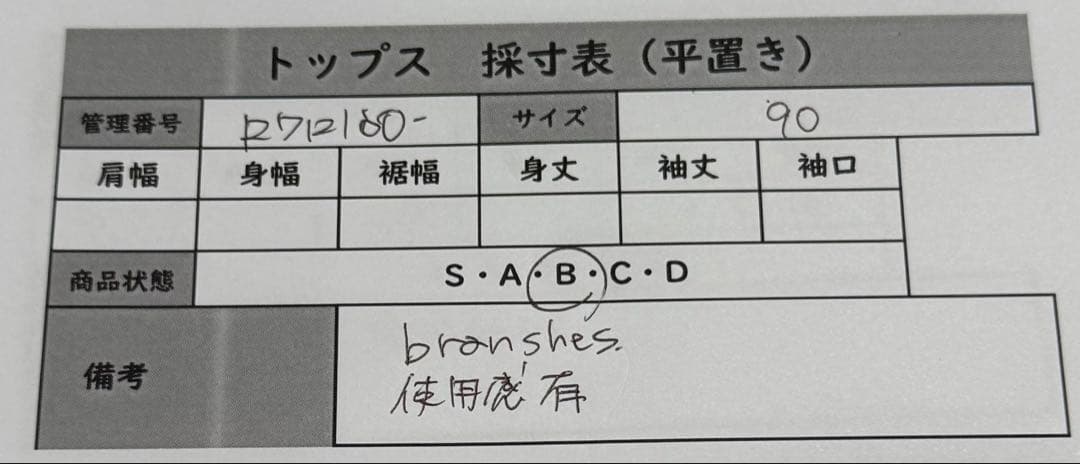 トップス 採寸表（平置き）
管理番号 R7R180- サイズ 90
肩幅 身幅 裾幅 身丈 袖丈 袖口
商品状態 S・A・B・C・D
備考 branshes.
使用感有